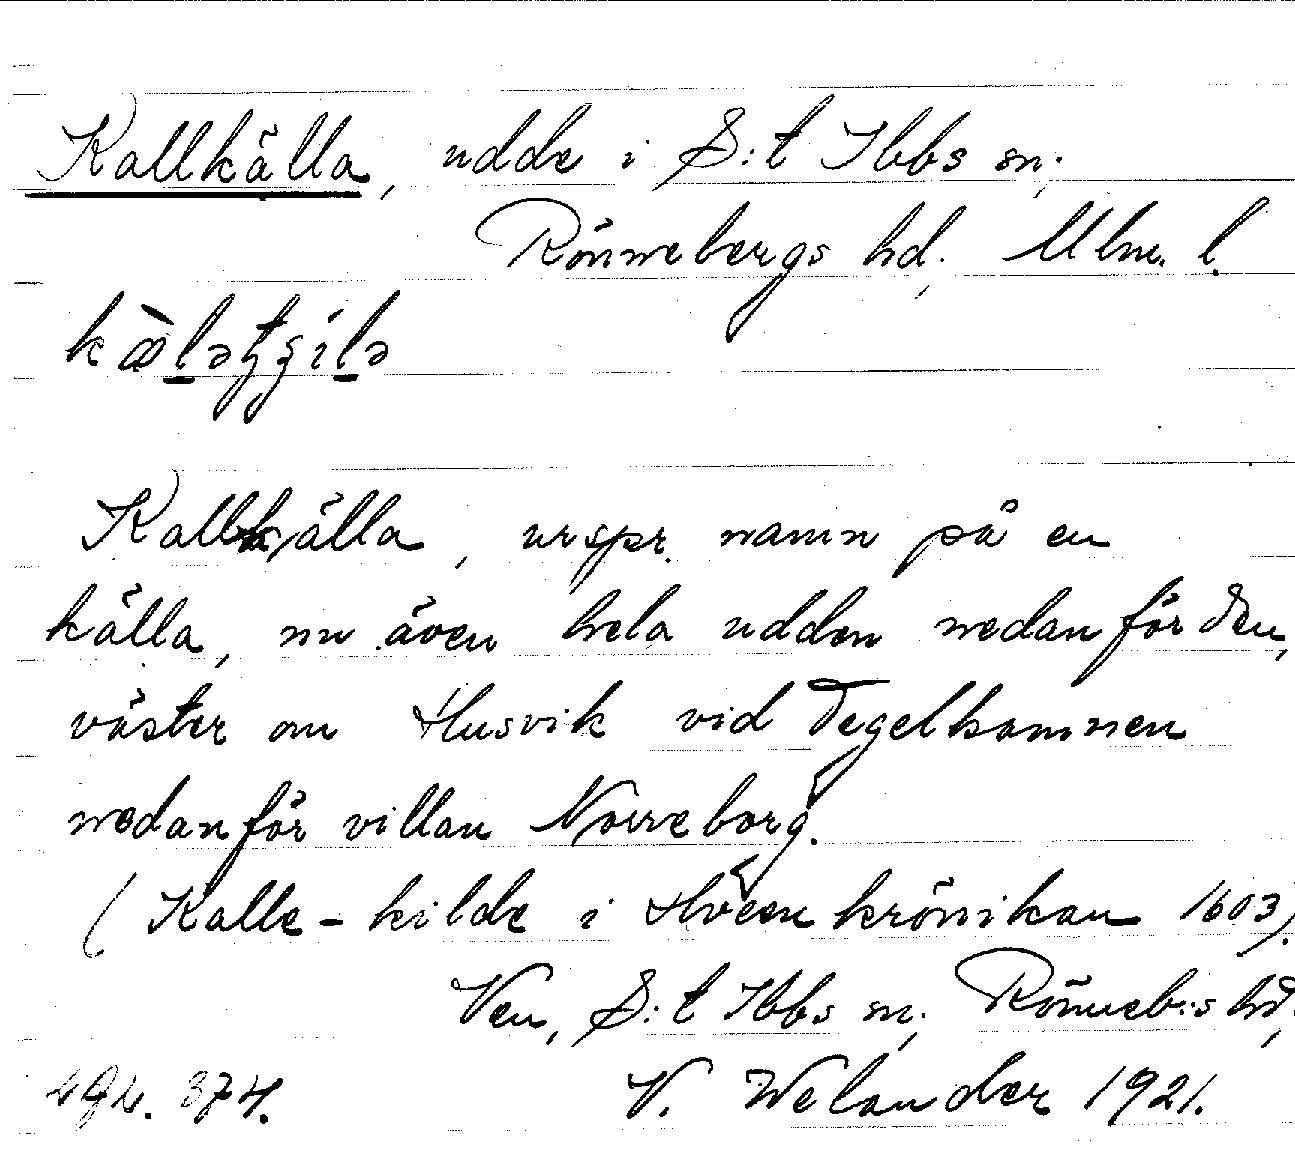 Kallkälla, udde i S:t Ibbs sn.
Rönnebergs hd, Mlm. l.
Kallkälla, urspr. namn på en
källa, nu även hela udden nedanför den,
väster om Husvik vid Tegelhamnen
nedanför villan Norreborg.
(Kalle-kilde i Hveenkrönikan 1603).
Ven, S:t Ibbs sn, Rönneb:s hd,
374. V. Welander 1921.